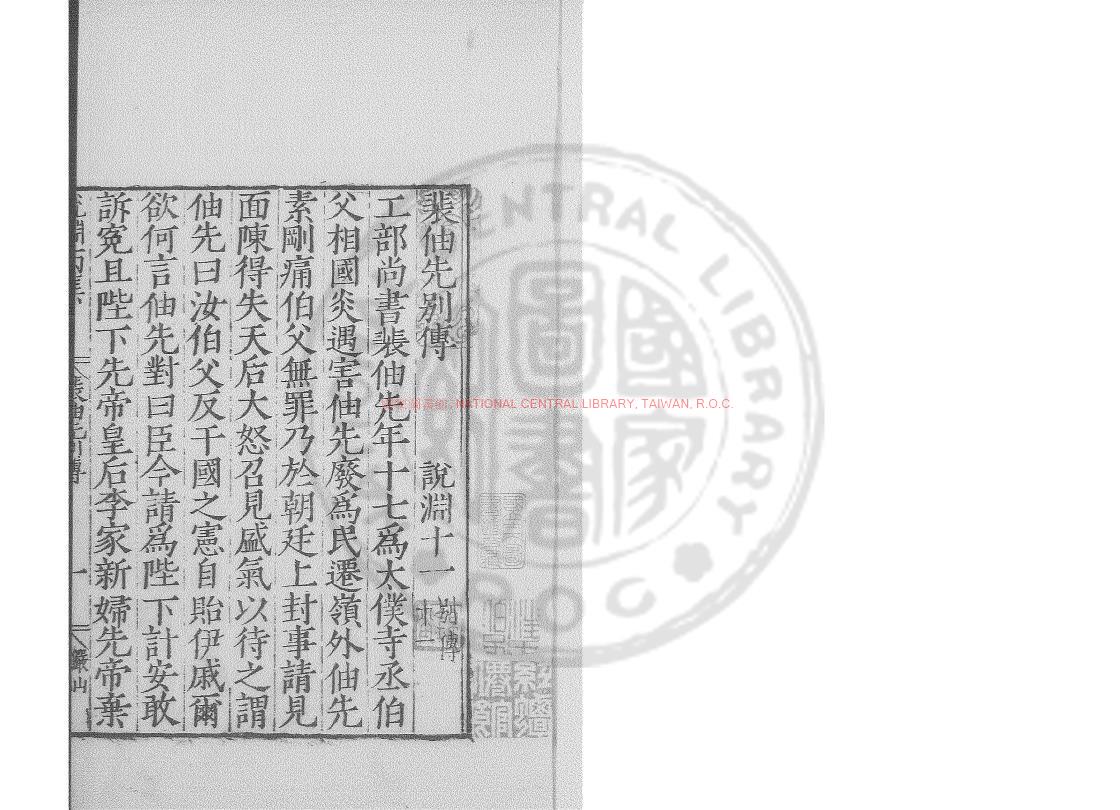 裴伷先別傳 說淵十一 別傳
工部尚書裴伷先年十七爲太僕寺丞伯
父相國炎遇害伷先廢爲民遷嶺外伷先
素剛痛伯父無罪乃於朝廷上封事請見
面陳得失天后大怒召見盛氣以待之謂
伷先曰汝伯父反干國之憲自貽伊戚爾
欲何言伷先對曰臣今請爲陛下計安敢
訴冤且陛下先帝皇后李家新婦先帝棄
裴伷先別傳 一 儼山
NATIONAL CENTRAL LIBRARY, TAIWAN, R.O.C.
CENTRAL LIBRARY
R.O.C.
國家圖書